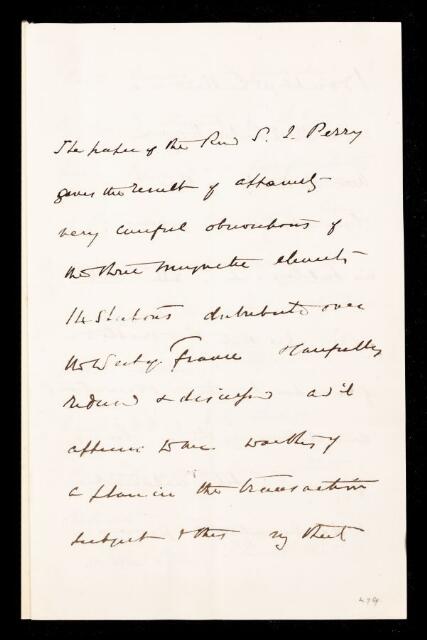 The paper of the Revd S. J. Perry
gives the result of apparently
very careful observations of
the three magnetic elements
14 Stations distributed over
the West of France & carefully
reduced & discussed and it
appears to me worthy of
a place in the Transactions
subject to this